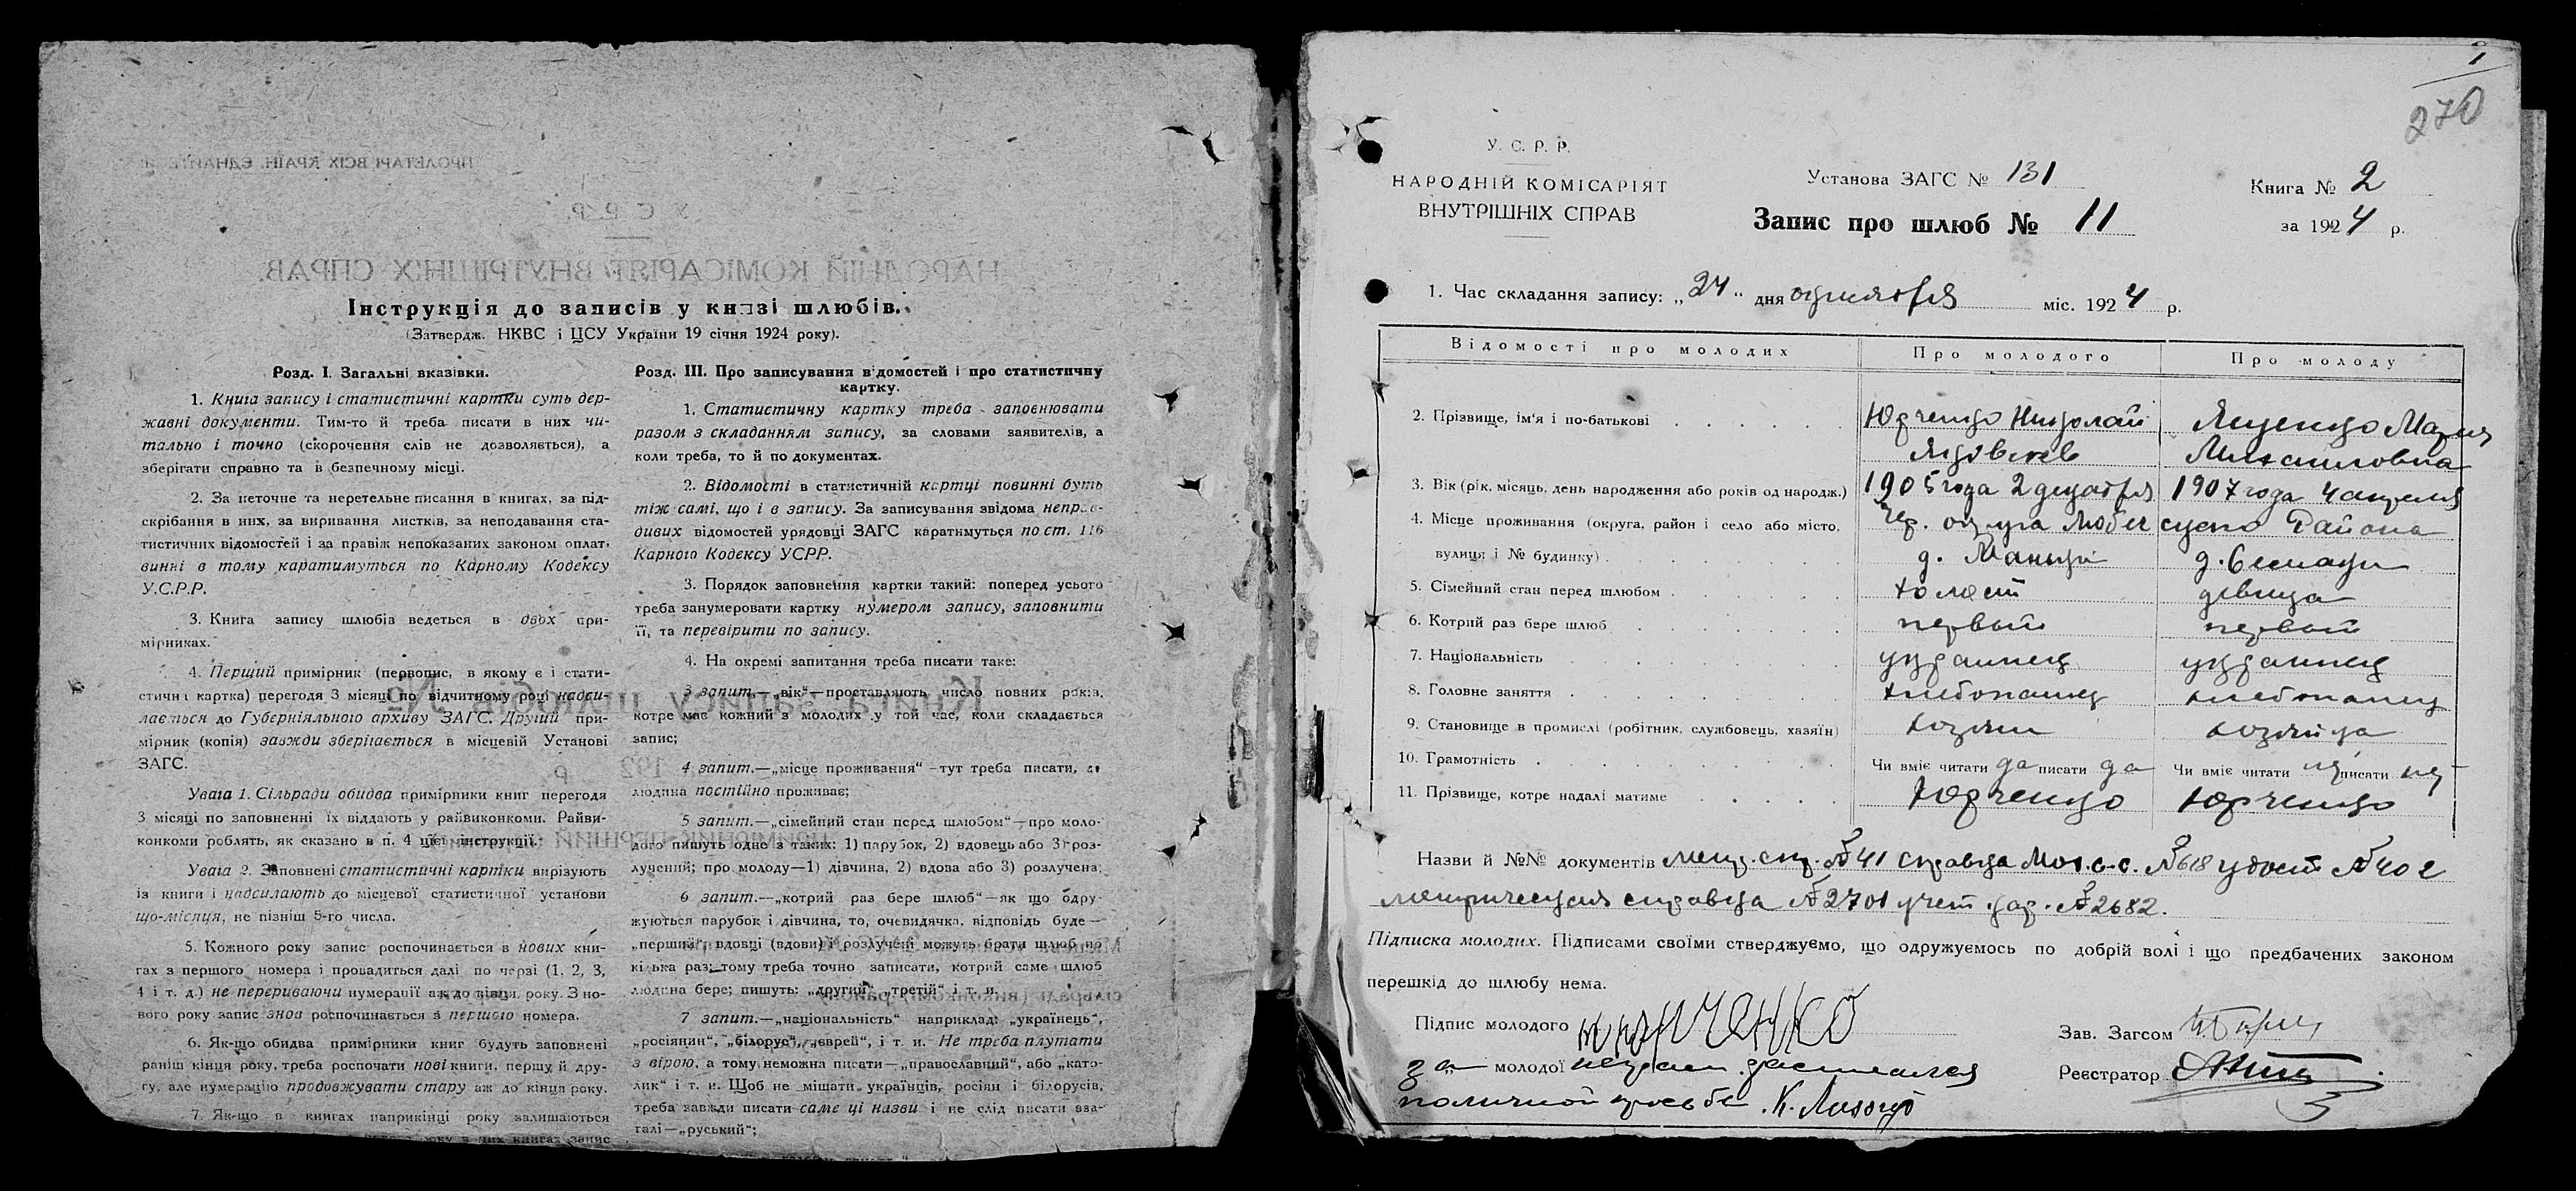 Інструкція до записів у книзі шлюбів.
(Затвердж. НКВС і ЦСУ України 19 січня 1924 року).
Розд. I. Загальні вказівки.
1. Книга запису і статистичні картки суть дер-
жавні документи. Тим-то й треба писати в них чи-
тально і точно (скорочення слів не дозволяється), а
зберігати справно та в безпечному місці.
2. За неточне та неретельне писання в книгах, за під-
скрібання в них, за виривання листків, за неподавання ста-
тистичних відомостей і за правіж непоказаних законом оплат,
винні в тому каратимуться по Карному Кодексу
У.С.Р.Р.
3. Книга запису шлюбів ведеться в двох при-
мірниках.
4. Перший примірник (первопис, в якому є і стати-
стичні картка) перегодя 3 місяці по відчитному році надси-
лається до Губерніяльного архиву ЗАГС. Другий при-
мірник (копія) завжди зберігається в місцевій Установі
ЗАГС.
Увага 1. Сільради обидва примірники книг перегодя
3 місяці по заповненні їх віддають у райвиконкоми. Райви-
конкоми роблять, як сказано в п. 4 цієї інструкції.
Увага 2. Заповнені статистичні картки вирізують
із книги і надсилають до місцевої статистичної установи
що-місяця, не пізніш 5-го числа.
5. Кожного року запис розпочинається в нових кни-
гах з першого номера і провадиться далі по черзі (1, 2, 3,
4 і т. д.) не перериваючи нумерації аж до кінця року. З но-
вого року запис знов розпочинається з першого номера.
6. Як-що обидва примірники книг будуть заповнені
раніш кінця року, треба розпочати нові книги, першу й дру-
гу, але нумерацію продовжувати стару аж до кінця року.
7. Як-що в книгах наприкінці року залишаються
року в цих книгах запис
Розд. III. Про записування відомостей і про статистичну
картку.
1. Статистичну картку треба заповнювати
разом з складанням запису, за словами заявителів, а
коли треба, то й по документах.
2. Відомості в статистичній картці повинні бути
тіж самі, що і в запису. За записування звідома неправ-
дивих відомостей урядовці ЗАГС каратимуться по ст. 116
Карного Кодексу УСРР.
3. Порядок заповнення картки такий: поперед усього
треба занумеровати картку нумером запису, заповнити
її, та перевірити по запису.
4. На окремі запитання треба писати таке:
3 запит.—„вік“—проставляють число повних років,
котре має кожний з молодих у той час, коли складається
запис;
4 запит.—„місце проживання“ –тут треба писати, де
людина постійно проживає;
5 запит.—„сімейний стан перед шлюбом“—про моло-
дого пишуть одно з таких: 1) парубок, 2) вдовець або 3) роз-
лучений; про молоду—1) дівчина, 2) вдова або 3) розлучена;
6 запит.—„котрий раз бере шлюб“—як що одру-
жуються парубок і дівчина, то, очевидячка, відповідь буде—
„перший“; вдовці (вдови) і розлучені можуть брати шлюб по
кілька раз; тому треба точно записати, котрий саме шлюб
людина бере; пишуть: „другий“, „третій“ і т. и.
7 запит.—„національність“ наприклад: „українець“,
„росіянин“, „білорус“, „єврей“, і т. и. Не треба плутати
з вірою, а тому неможна писати—„православний“, або „като-
лик“ і т. и. Щоб не мішати українців, росіян і білорусів,
треба завжди писати саме ці назви і не слід писати вза-
галі—„руський“;
1
270
У. С. Р. Р.
НАРОДНІЙ КОМІСАРІЯТ
ВНУТРІШНІХ СПРАВ
Установа ЗАГС № 131
Книга № 2
Запис про шлюб № 11
за 1924 р.
1. Час складання запису: „24“ дня октября міс. 1924 р.
Відомості про молодих Про молодого Про молоду
2. Прізвище, ім'я і по-батькові Юрченко Николай Яковлев Яценко Мария Михайловна
3. Вік (рік, місяць, день народження або років од народж.) 1905 года 2 декабря 1907 года 4 апреля
4. Місце проживання (округа, район і село або місто, Чер. округа Любечского Района
вулиця і № будинку) д. Маньки д.
5. Сімейний стан перед шлюбом холост девица
6. Котрий раз бере шлюб первый первый
7. Національність украинец украинец
8. Головне заняття хлебопашец хлебопашец
9. Становище в промислі (робітник, службовець, хазяїн) хозяин хозяйка
10. Грамотність Чи вміє читати да писати да Чи вміє читати не писати не
11. Прізвище, котре надалі матиме Юрченко Юрченко
Назви й №№ документів № 41 справка с.с. № 618 удост № 402
метрическая справка № 2701 учет. кар. № 2682.
Підписка молодих. Підписами своїми стверджуємо, що одружуємось по добрій волі і що предбачених законом
перешкід до шлюбу нема.
Підпис молодого
Зав. Загсом
за молодої неграм. расписался
Реєстратор
по личной просьбе К.